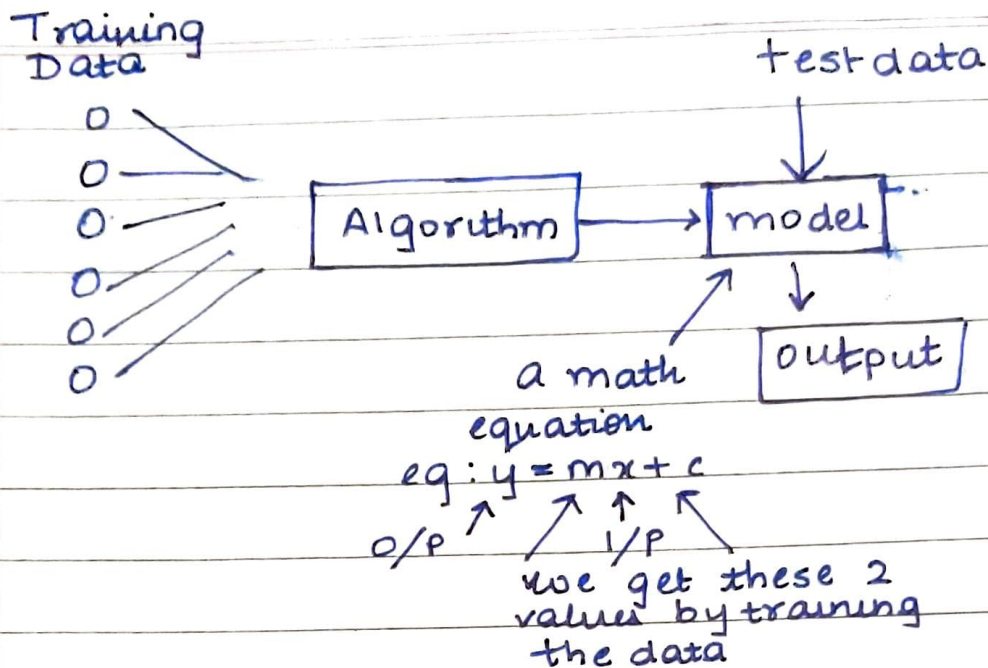 Training
Data
test data
Algorithm
model
output
a math
equation
eg : y = mx + c
O/P
I/P
we get these 2
values by training
the data